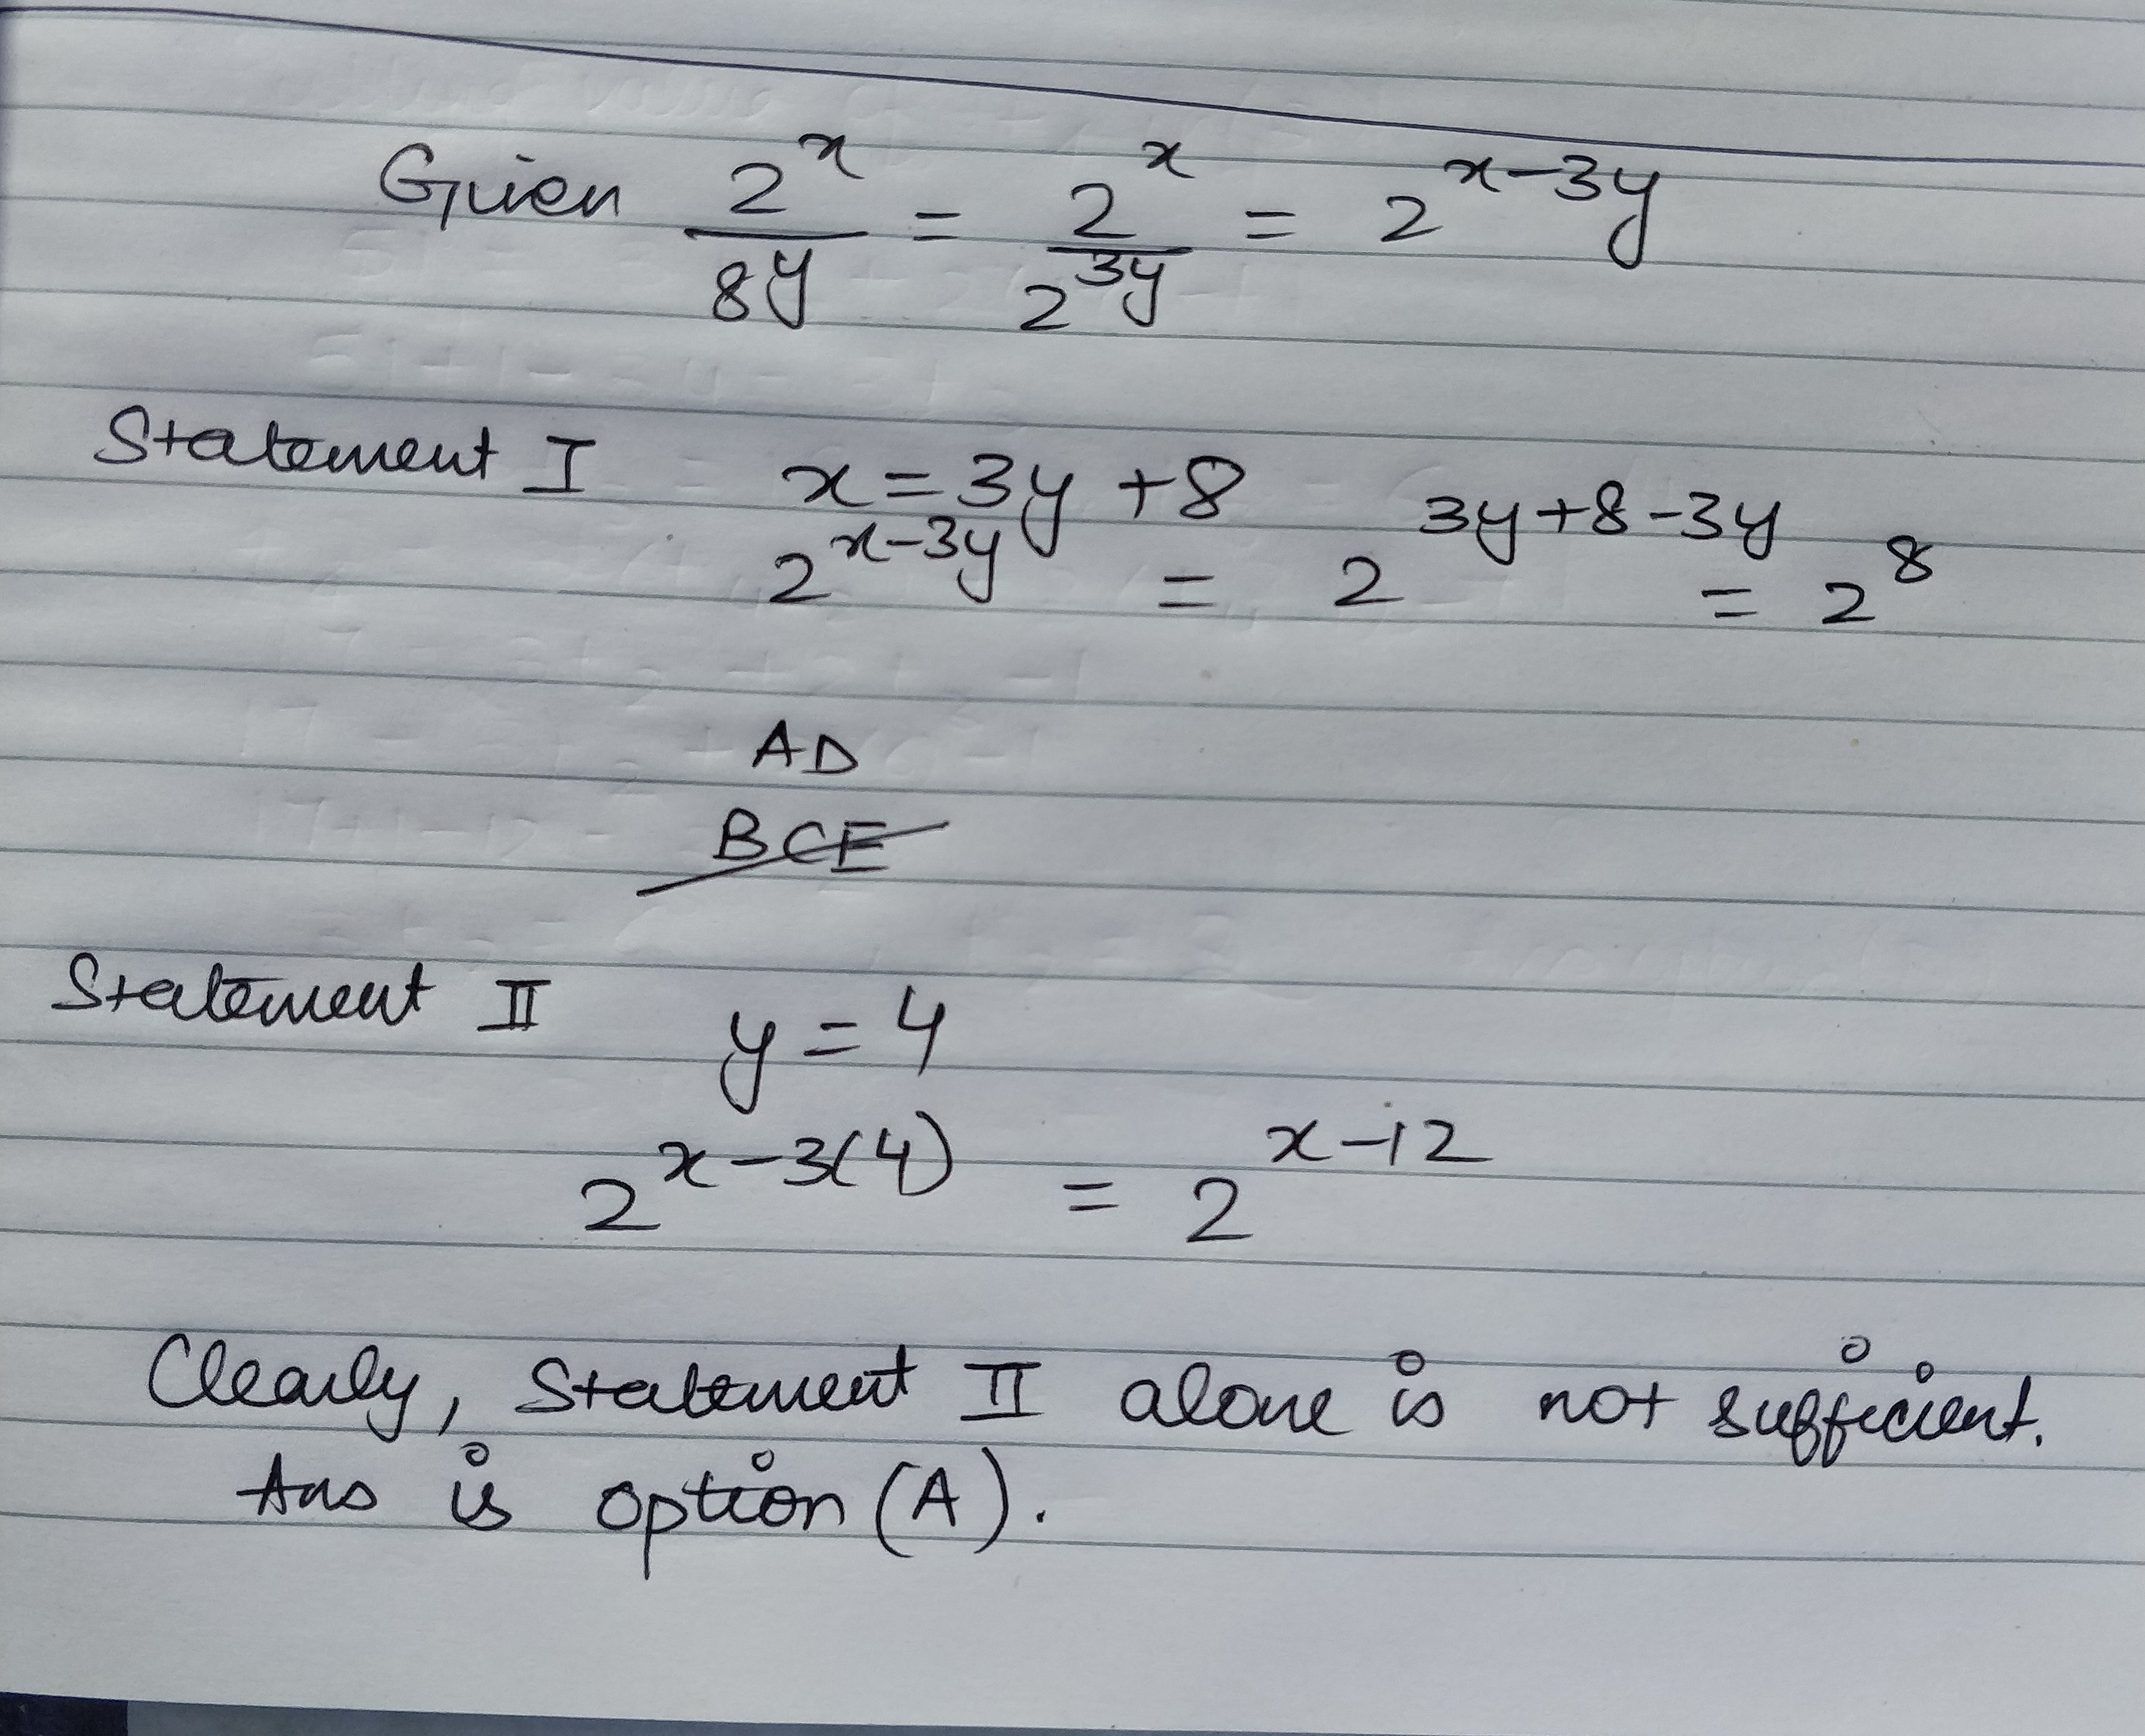 Given 2^x / 8^y = 2^x / 2^3y = 2^x-3y
Statement I x = 3y + 8
2^x-3y = 2^3y+8-3y = 2^8
AD
BCE
Statement II y = 4
2^x-3(4) = 2^x-12
Clearly, Statement II alone is not sufficient.
Ans is option (A).